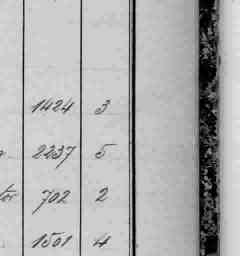 1424 3
2237 5
tor 702 2
1501 4